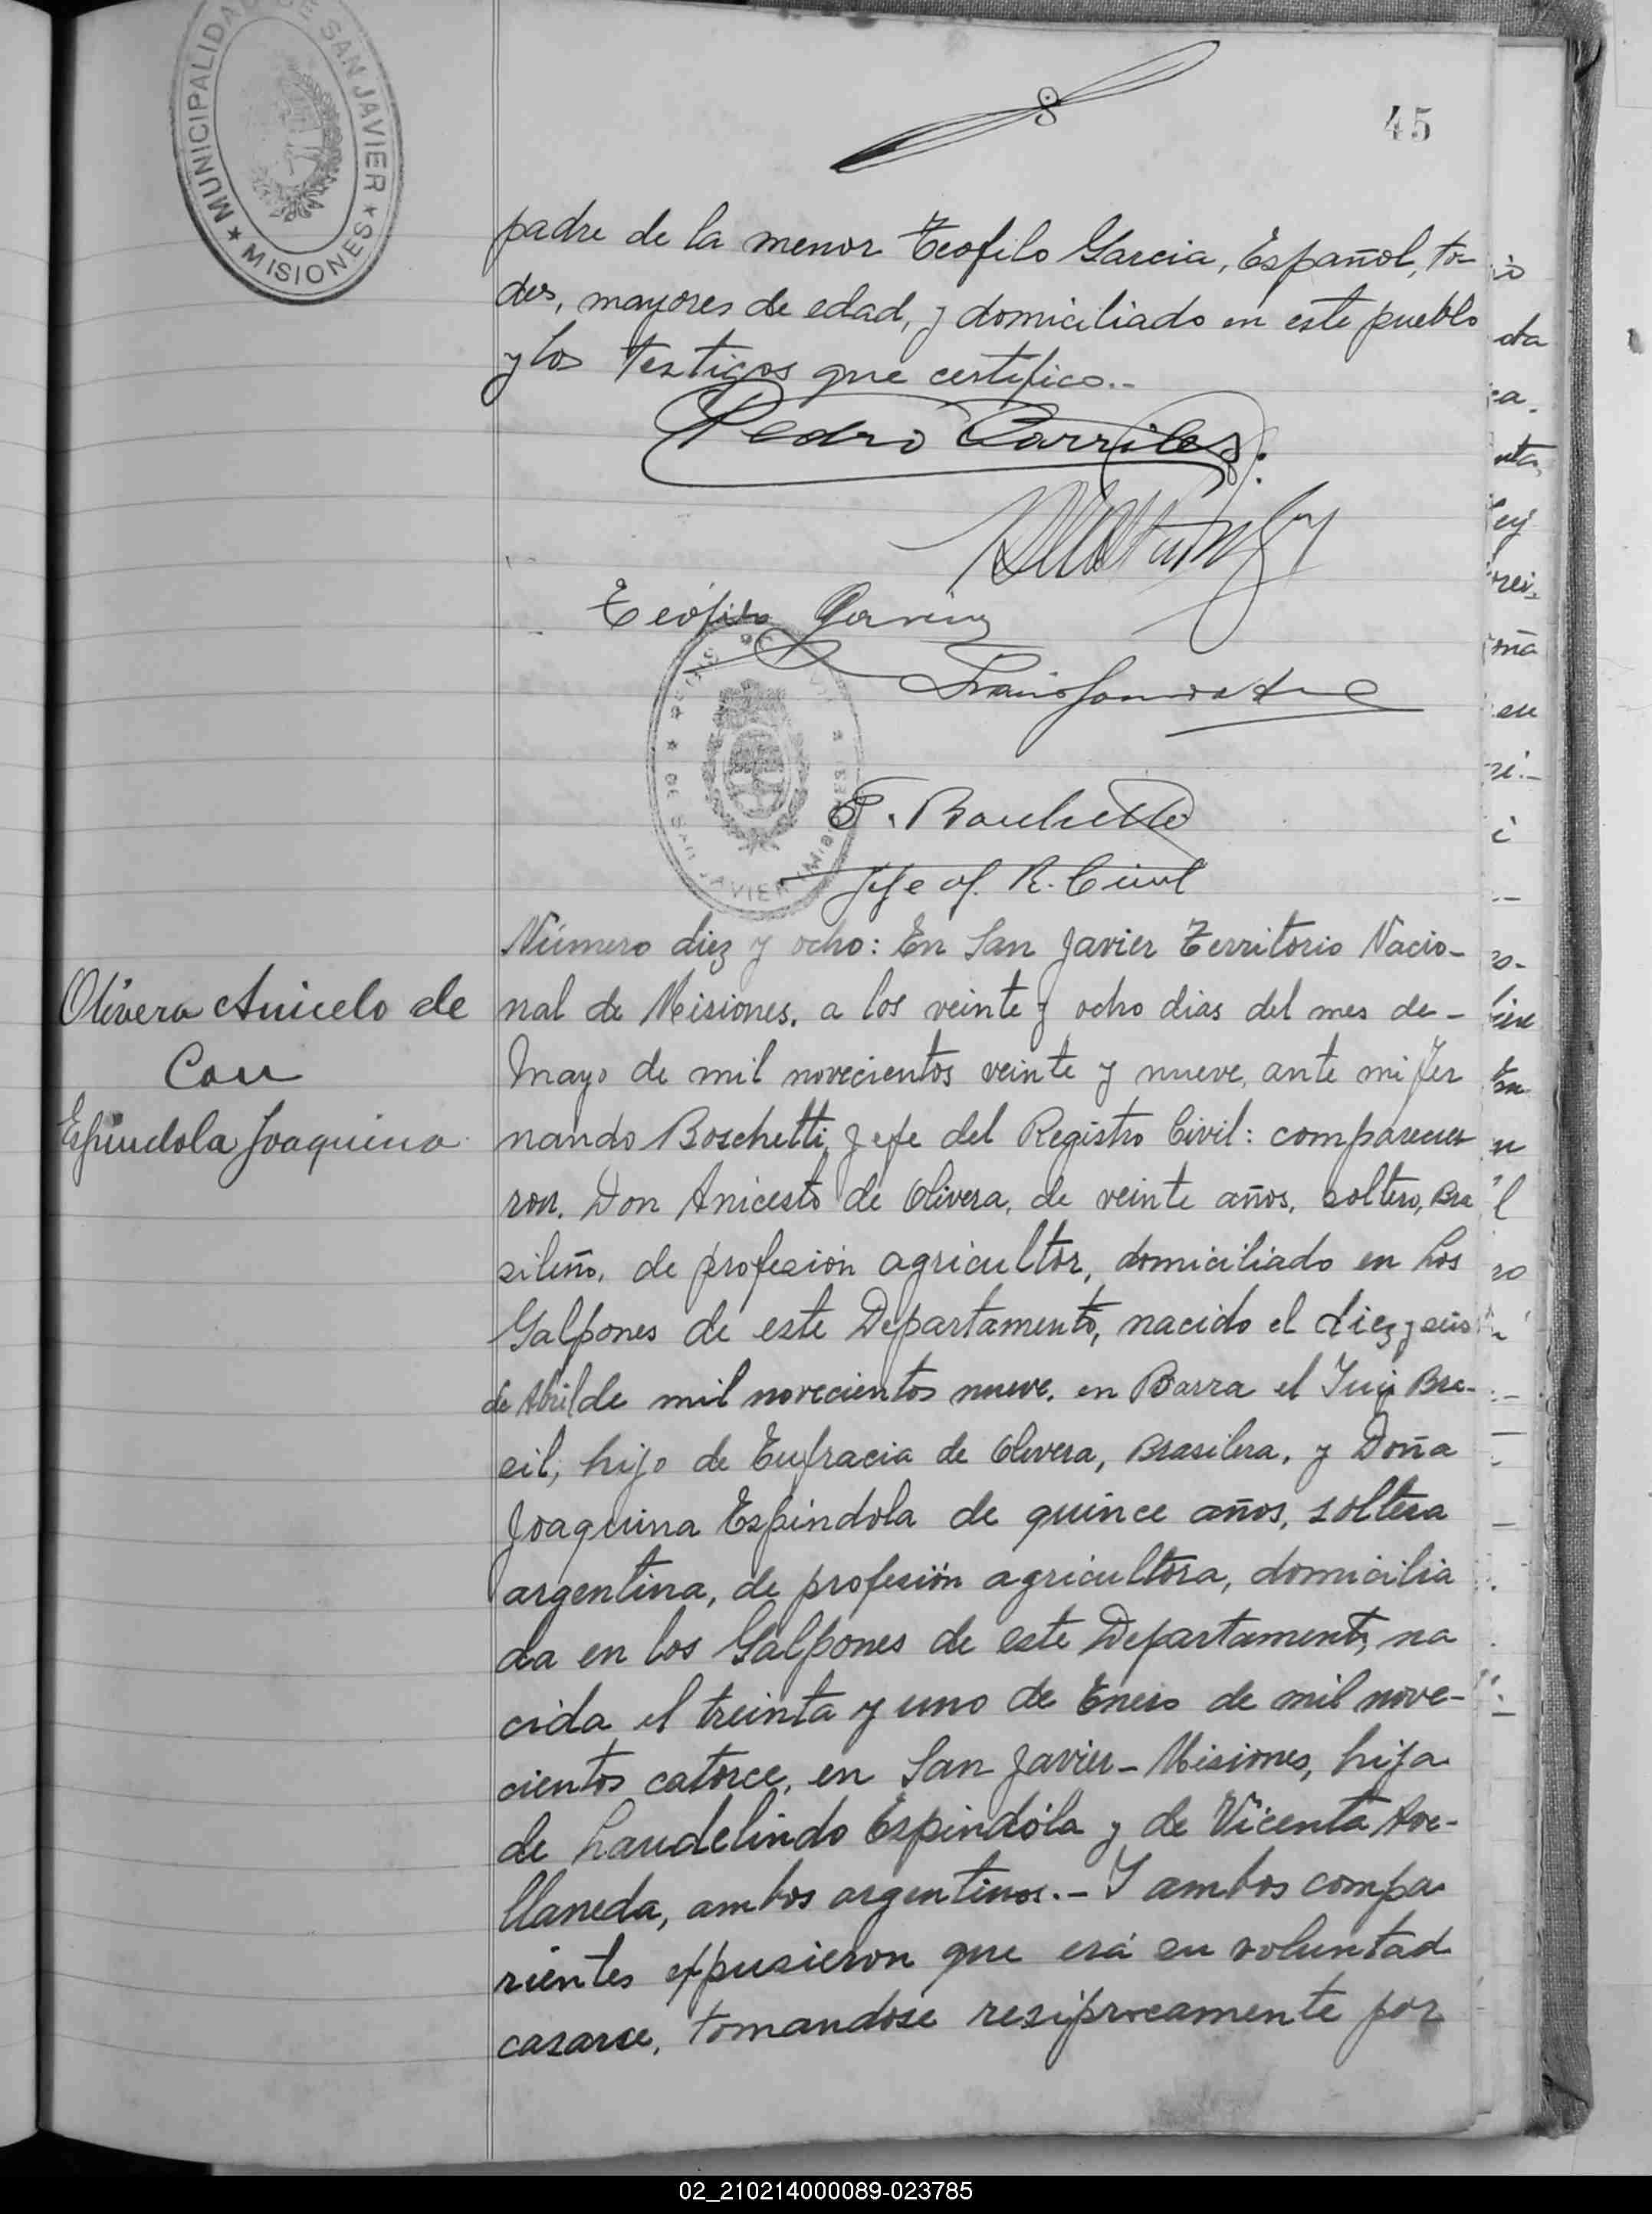 MUNICIPALIDAD DE SAN JAVIER
★ MISIONES ★
45
padre de la menor Teofilo Garcia, Español, to-
dos, mayores de edad, y domiciliado en este pueblo
y los testigos que certifico.-
Pedro Carriles.
Teófilo Garcia
F. Boschetti
Jefe of. R. Civil
DE SAN JAVIER (MISIONES)
Olivera Aniceto de
Con
Espindola Joaquina
Número diez y ocho: En San Javier Territorio Nacio-
nal de Misiones. a los veinte y ocho dias del mes de-
Mayo de mil novecientos veinte y nueve, ante mi Fer
nando Boschetti, Jefe del Registro Civil: comparecie
ron. Don Anicesto de Olivera, de veinte años, soltero, Bra
sileño, de profesión agricultor, domiciliado en Los
Galpones de este Departamento, nacido el diez y seis
de Abril de mil novecientos nueve. en Barra el Iuy Bra-
sil, hijo de Eufracia de Olivera, Brasilera, y Doña
Joaquina Espindola de quince años, soltera
argentina, de profesión agricultora, domicilia
da en los Galpones de este Departamento, na
cida el treinta y uno de Enero de mil nove-
cientos catorce, en San Javier - Misiones, hija
de Laudelindo Espindóla y de Vicenta Ave-
llaneda, ambos argentinos.- Y ambos compa
rientes expusieron que erá su voluntad
casarse, tomandose resiprocamente por
02_210214000089-023785